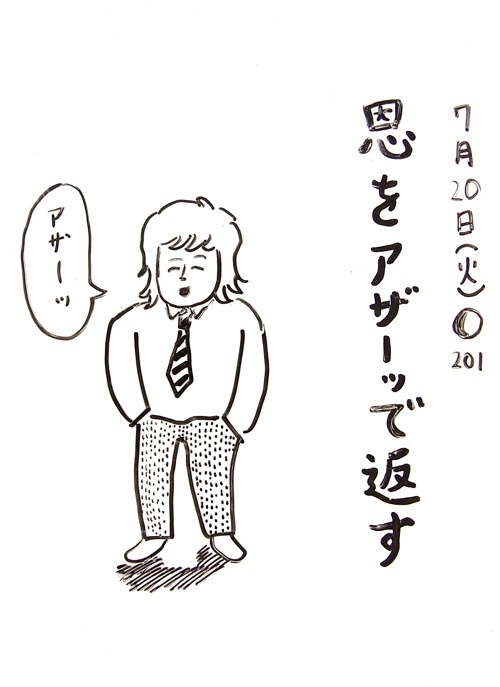 7月20日(火)
201
恩をアザーッで返す
アザーッ